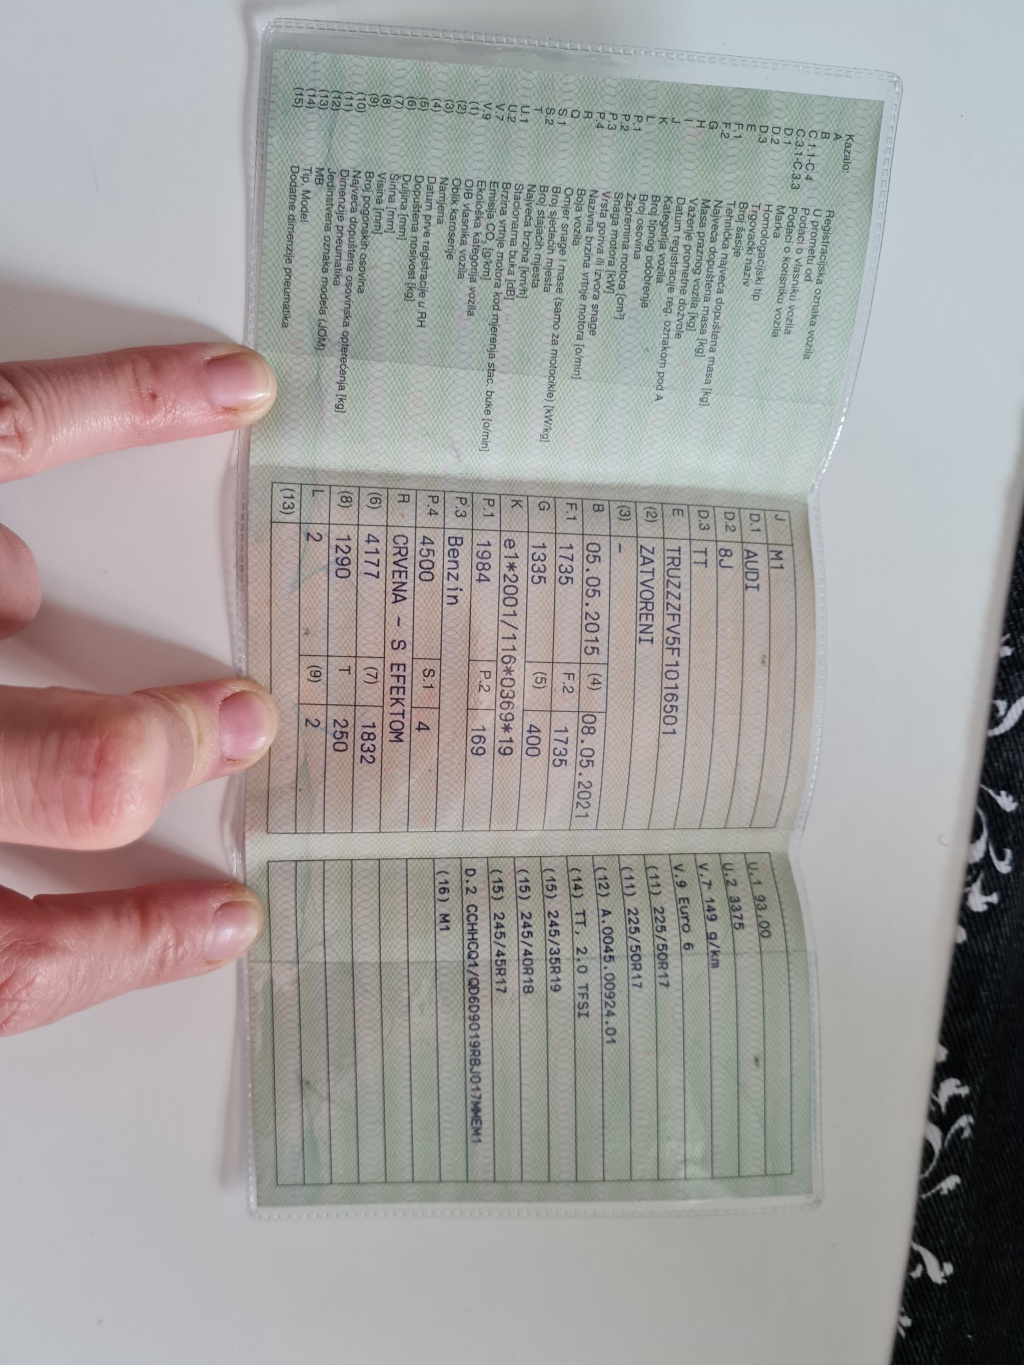 Kazalo:
A Registracijska oznaka vozila
B U prometu od
C.1.1-C.4 Podaci o vlasniku vozila
C.3.1-C.3.3 Podaci o korisniku vozila
D.1 Marka
D.2 Homologacijski tip
D.3 Trgovački naziv
E Broj šasije
F.1 Tehnička najveća dopuštena masa [kg]
F.2 Najveća dopuštena masa [kg]
G Masa praznog vozila [kg]
H Važenje prometne dozvole
I Datum registracije reg. oznakom pod A
J Kategorija vozila
K Broj tipnog odobrenja
L Broj osovina
P.1 Zapremina motora [cm³]
P.2 Snaga motora [kW]
P.3 Vrsta goriva ili izvora snage
P.4 Nazivna brzina vrtnje motora [o/min]
R Boja vozila
Q Omjer snage i mase (samo za motocikle) [kW/kg]
S.1 Broj sjedećih mjesta
S.2 Broj stajaćih mjesta
T Najveća brzina [km/h]
U.1 Stacionarna buka [dB]
U.2 Brzina vrtnje motora kod mjerenja stac. buke [o/min]
V.7 Emisija CO₂ [g/km]
V.9 Ekološka kategorija vozila
(1) OIB vlasnika vozila
(2) Oblik karoserije
(3) Namjena
(4) Datum prve registracije u RH
(5) Dopuštena nosivost [kg]
(6) Duljina [mm]
(7) Širina [mm]
(8) Visina [mm]
(9) Broj pogonskih osovina
(10) Najveća dopuštena osovinska opterećenja [kg]
(11) Dimenzije pneumatika
(12) Jedinstvena oznaka modela (JOM)
(13) MB
(14) Tip, Model
(15) Dodatne dimenzije pneumatika
J M1
D.1 AUDI
D.2 8J
D.3 TT
E TRUZZZFV5F1016501
(2) ZATVORENI
(3) -
B 05.05.2015 (4) 08.05.2021
F.1 1735 F.2 1735
G 1335 (5) 400
K e1*2001/116*0369*19
P.1 1984 P.2 169
P.3 Benzin
P.4 4500 S.1 4
R CRVENA - S EFEKTOM
(6) 4177 (7) 1832
(8) 1290 T 250
L 2 (9) 2
(13)
U.1 93,00
U.2 3375
V.7 149 g/km
V.9 Euro 6
(11) 225/50R17
(11) 225/50R17
(12) A.0045.00924.01
(14) TT, 2.0 TFSI
(15) 245/35R19
(15) 245/40R18
(15) 245/45R17
D.2 CCHHCQ1/QD6D9019R8J017MMEM1
(16) M1